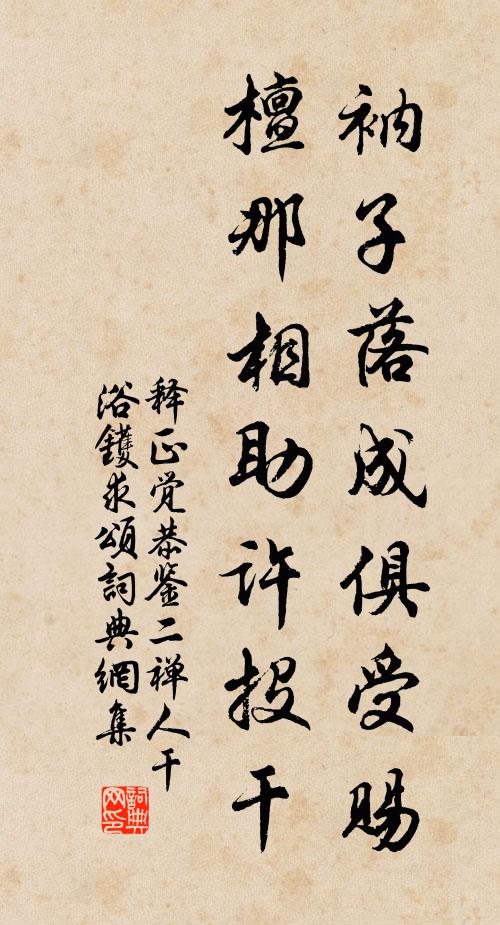 衲子落成俱受賜
檀那相助許投干
释正觉恭鉴二禅人干
浴鑊求頌詞典網集
詞典网印